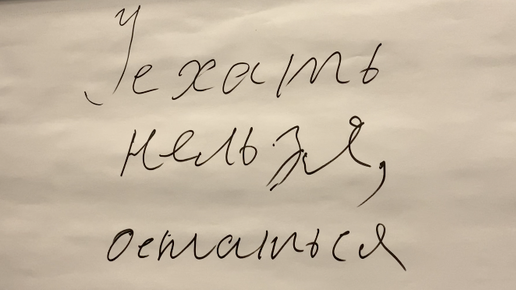 Уехать
нельзя,
остаться